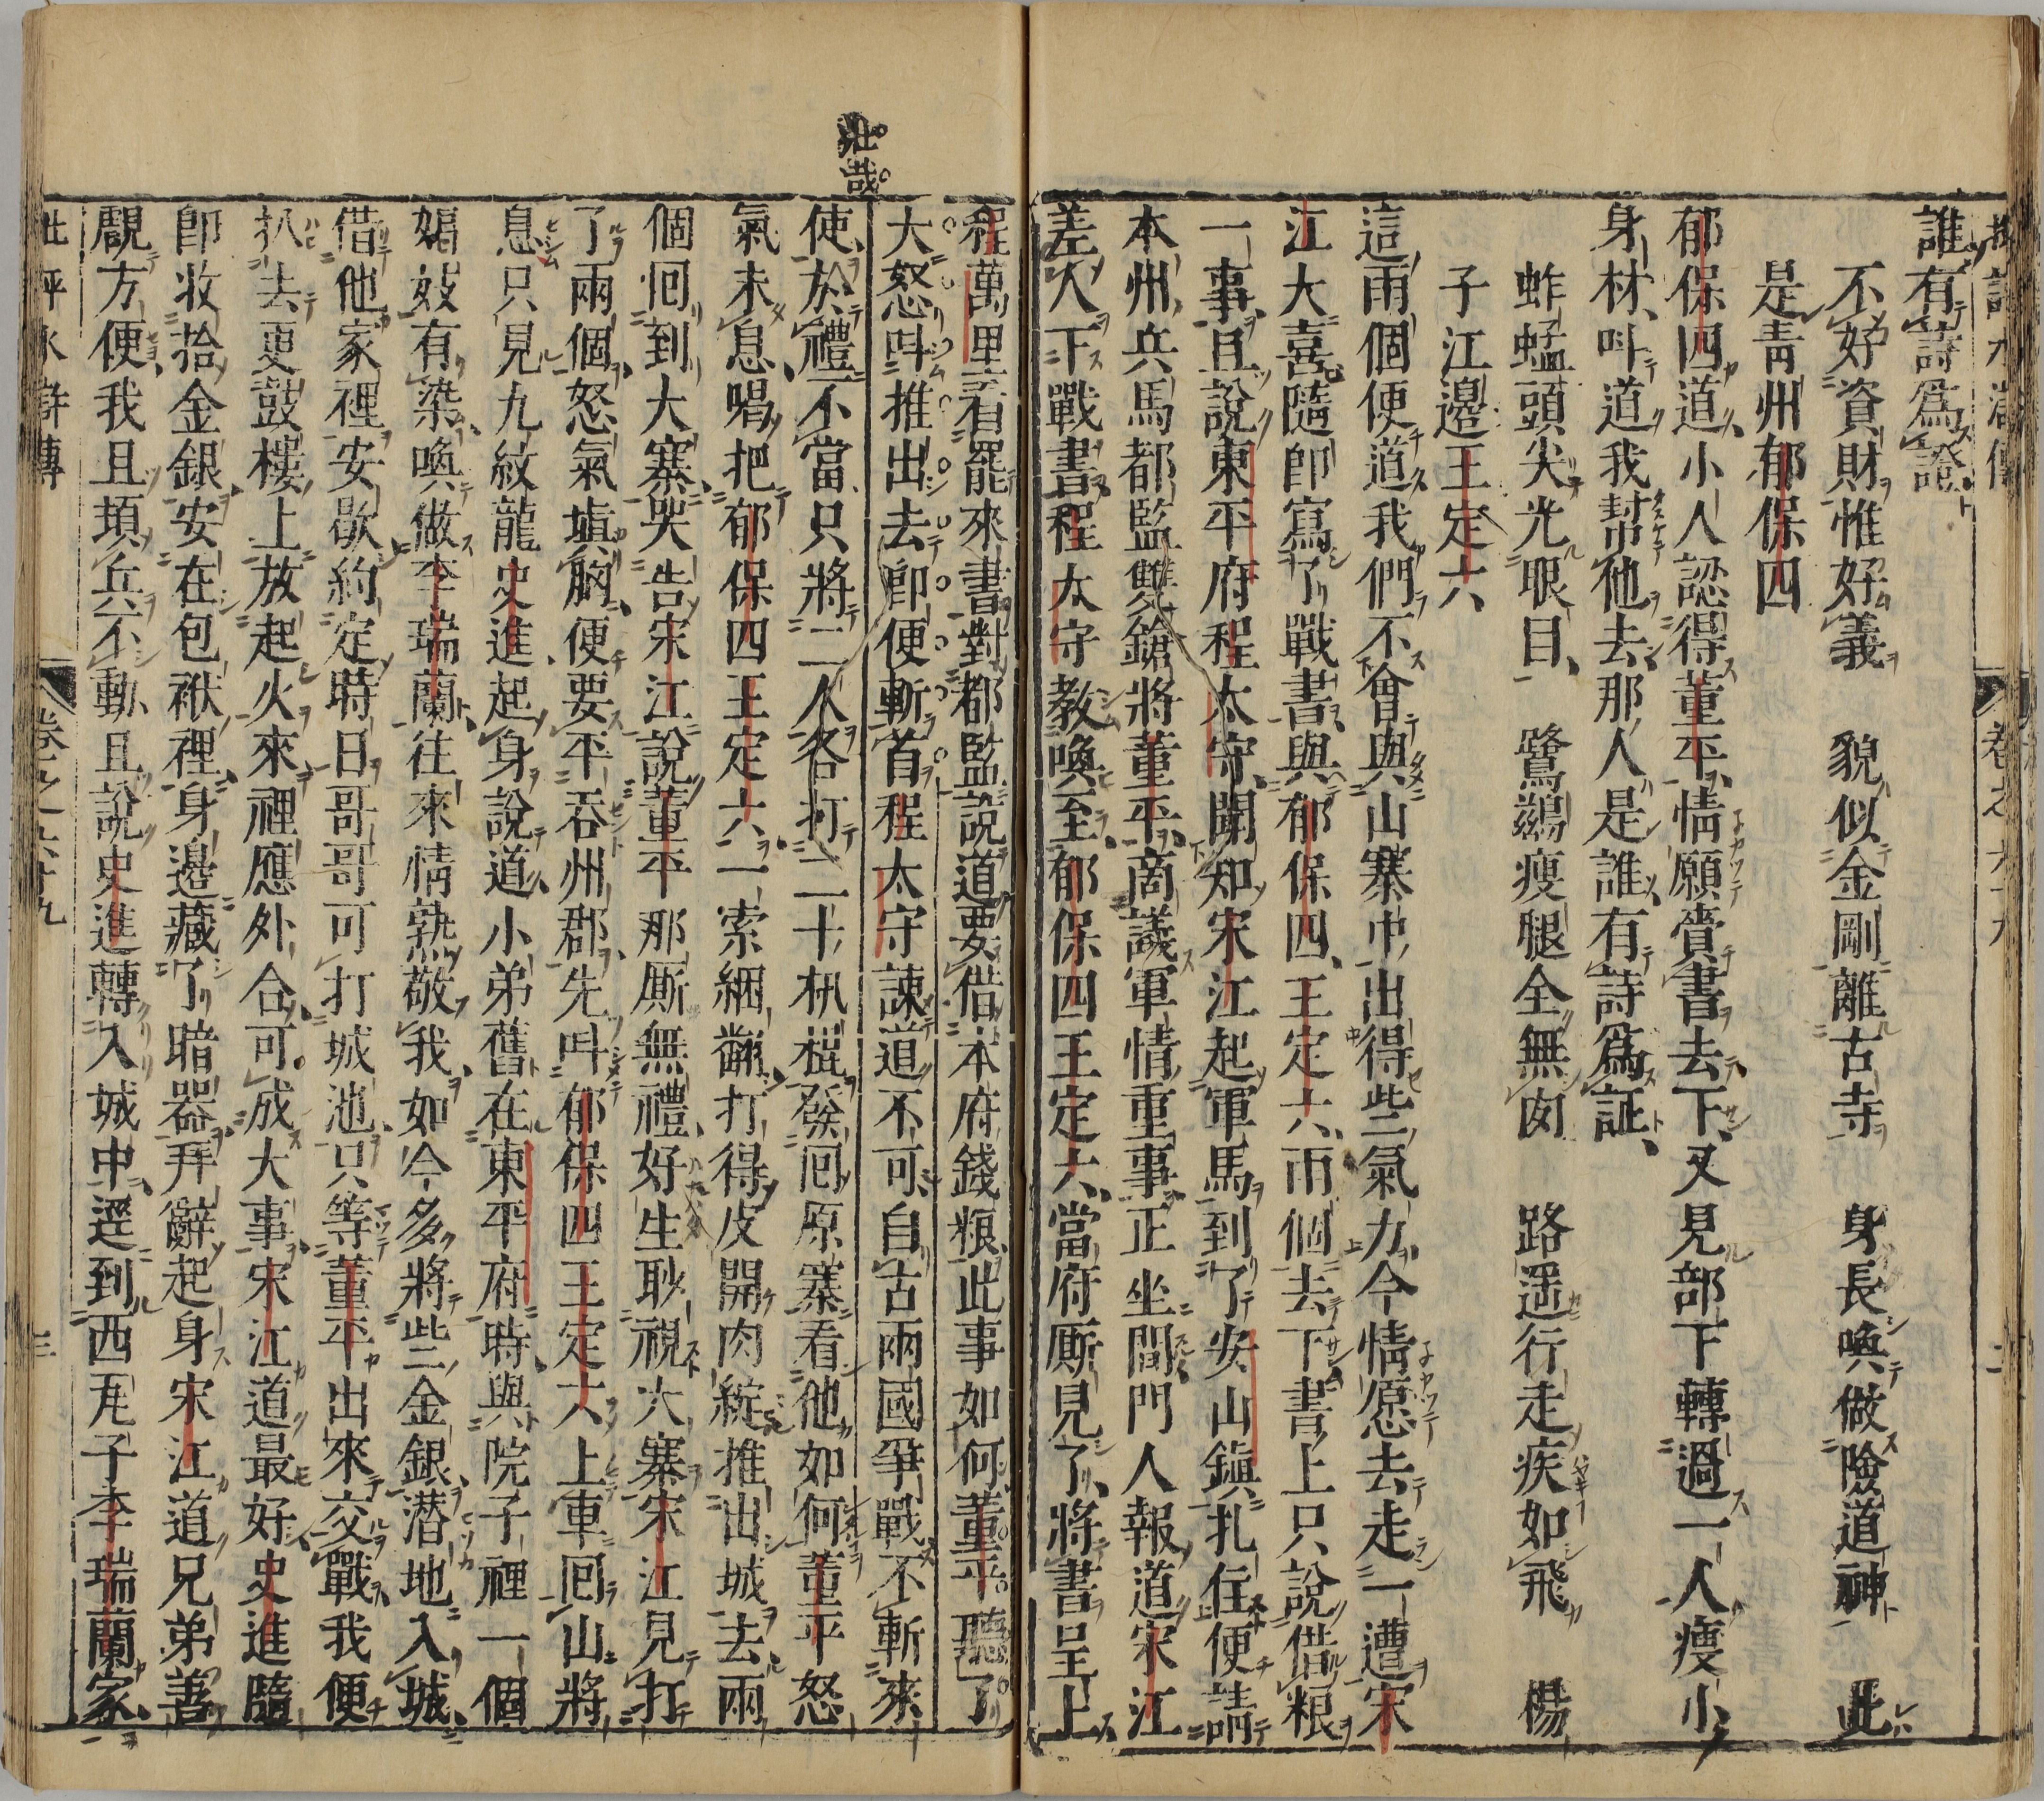 誰有詩爲證
不好資財惟好義　貌似金剛離古寺　身長喚做險道神　此
是靑州郁保四
郁保四道小人認得董平情願賫書去下又見部下轉過一人瘦小
身材呌道我幇他去那人是誰有詩爲証
蚱蜢頭尖光眼目　鷺鷀瘦腿全無肉　路遥行走疾如飛　楊
子江邊王定六
這兩個便道我們不曾與山寨中出得些氣力今情愿去走一遭宋
江大喜隨卽寫了戰書與郁保四王定六兩個去下書上只說借粮
一事且說東平府程太守聞知宋江起軍馬到了安山鎭扎住便請
本州兵馬都監雙鎗將董平商議軍情重事正坐間門人報道宋江
差人下戰書程太守教喚至郁保四王定六當府厮見了將書呈上
程萬里看罷來書對都監說道要借本府錢粮此事如何董平聽了
大怒呌推出去卽便斬首程太守諫道不可自古兩國爭戰不斬來
使於禮不當只將二人各打二十杖棍發囘原寨看他如何董平怒
氣未息喝把郁保四王定六一索綑翻打得皮開肉綻推出城去兩
個囘到大寨哭告宋江說董平那厮無禮好生眇視大寨宋江見打
了兩個怒氣塡胸便要平吞州郡先呌郁保四王定六上車囘山將
息只見九紋龍史進起身說道小弟舊在東平府時與院子裡一個
娼妓有染喚做李瑞蘭往來情熟敬我如今多將些金銀潛地入城
借他家裡安歇約定時日哥哥可打城池只等董平出來交戰我便
扒去更鼓樓上放起火來裡應外合可成大事宋江道最好史進隨
卽收拾金銀安在包袱裡身邊藏了暗器拜辭起身宋江道兄弟善
覷方便我且頓兵不動且說史進轉入城中逕到西瓦子李瑞蘭家
壯哉
批評水滸傳
卷之六十九
三